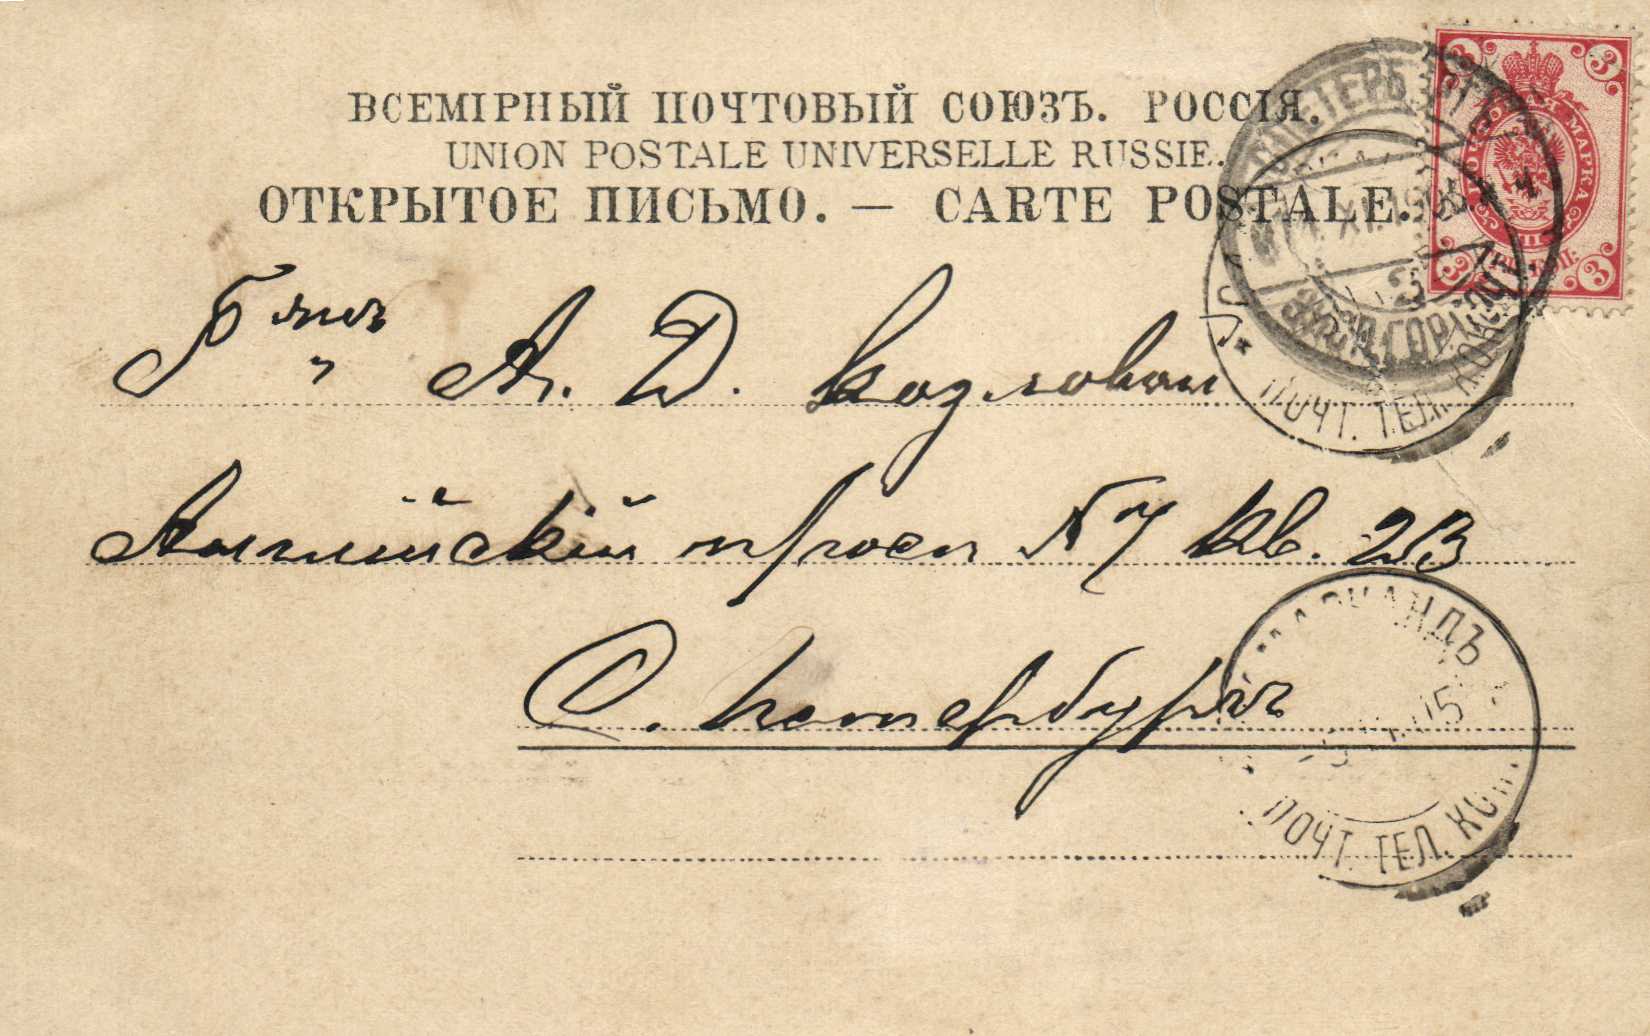 ВСЕМІРНЫЙ ПОЧТОВЫЙ СОЮЗЪ. РОССІЯ.
UNION POSTALE UNIVERSELLE RUSSIE.
ОТКРЫТОЕ ПИСЬМО. — CARTE POSTALE.
3 3
3 3
А. Д. Козловой
Англійскій просп № 7 кв. 23
С. Петербургъ
ПОЧТ. ТЕЛ. КОН
ПОЧТ. ТЕЛ. КОН